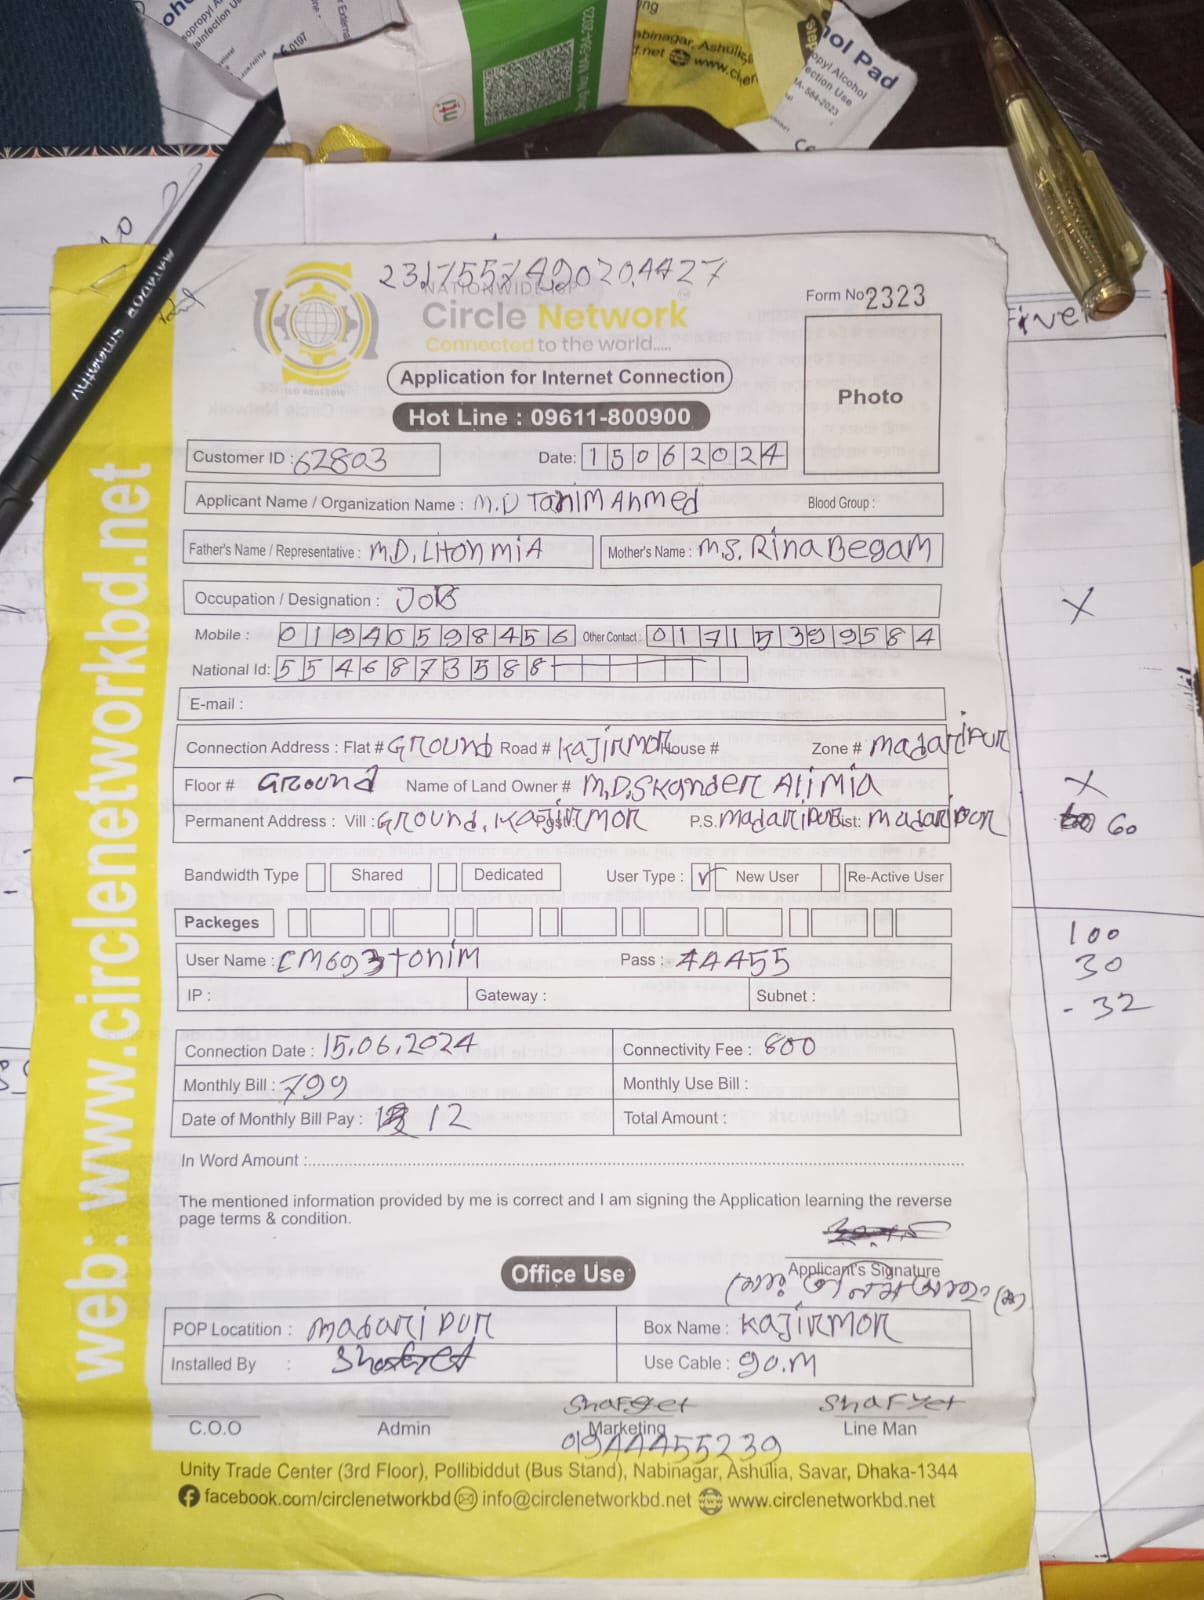 Isopropyl Alcohol
Disinfection Use
nti
MA-584-2023
abinagar, Ashulia
d.net www.circ
hol Pad
opyl Alcohol
ection Use
MA-584-2023
MATADOR smooth
23.17557490204427
NATIONWIDE ISP
Circle Network
Connected to the world.....
Form No 2323
Application for Internet Connection
Photo
Hot Line : 09611-800900
Customer ID : 62803
Date: 15062024
Applicant Name / Organization Name : M.D TaNiM AHMed
Blood Group :
Father's Name / Representative : M.D. LiTON MiA
Mother's Name : MS. RiNa BeGaM
Occupation / Designation : JOB
Mobile : 01940598456 Other Contact : 01715399584
National Id: 5546873588
E-mail :
Connection Address : Flat # GROUND Road # KAJiRMOR House # Zone # MADARiPUR
Floor # GROUND Name of Land Owner # M.D. SKANDER ALi MiA
Permanent Address : Vill : GROUND, KAJiRMOR P.S. MADARiPUR Dist: MADARiPUR
Bandwidth Type Shared Dedicated User Type : ✓ New User Re-Active User
Packeges
User Name : CM693toNiM Pass : 44455
IP : Gateway : Subnet :
Connection Date : 15.06.2024 Connectivity Fee : 800
Monthly Bill : 799 Monthly Use Bill :
Date of Monthly Bill Pay : 12 Total Amount :
In Word Amount :
The mentioned information provided by me is correct and I am signing the Application learning the reverse
page terms & condition.
Applicant's Signature
Office Use
POP Locatition : MADARiPUR Box Name : KAJiRMOR
Installed By : Use Cable : 90.M
SHAFYET
C.O.O Admin Marketing Line Man
01944455239
Unity Trade Center (3rd Floor), Pollibiddut (Bus Stand), Nabinagar, Ashulia, Savar, Dhaka-1344
facebook.com/circlenetworkbd info@circlenetworkbd.net www.circlenetworkbd.net
web: www.circlenetworkbd.net
X
X
60
100
30
- 32